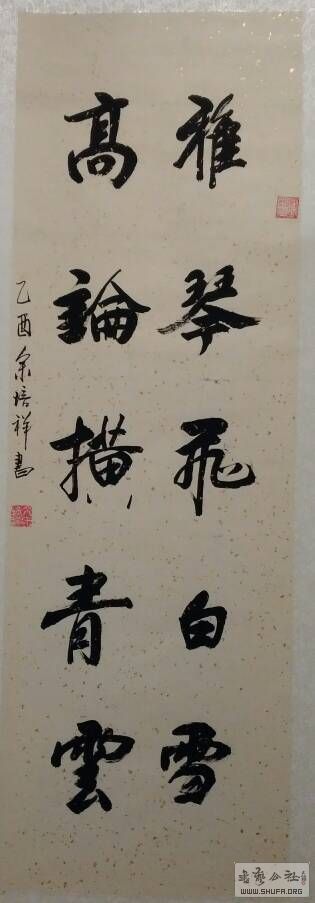 雅琴飛白雪
高論横青雲
乙酉余培祥書
WWW.SHUFA.ORG